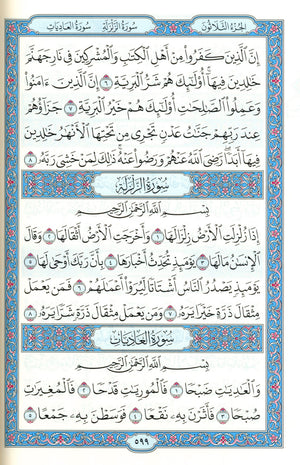 الجزء الثلاثون سورة الزلزلة سورة العاديات
إِنَّ ٱلَّذِينَ كَفَرُوا۟ مِنْ أَهْلِ ٱلْكِتَٰبِ وَٱلْمُشْرِكِينَ فِى نَارِ جَهَنَّمَ
خَٰلِدِينَ فِيهَآ أُو۟لَٰٓئِكَ هُمْ شَرُّ ٱلْبَرِيَّةِ ٦ إِنَّ ٱلَّذِينَ ءَامَنُوا۟
وَعَمِلُوا۟ ٱلصَّٰلِحَٰتِ أُو۟لَٰٓئِكَ هُمْ خَيْرُ ٱلْبَرِيَّةِ ٧ جَزَآؤُهُمْ
عِندَ رَبِّهِمْ جَنَّٰتُ عَدْنٍ تَجْرِى مِن تَحْتِهَا ٱلْأَنْهَٰرُ خَٰلِدِينَ
فِيهَآ أَبَدًا رَّضِىَ ٱللَّهُ عَنْهُمْ وَرَضُوا۟ عَنْهُ ذَٰلِكَ لِمَنْ خَشِىَ رَبَّهُۥ ٨
سورة الزلزلة
بِسْمِ ٱللَّهِ ٱلرَّحْمَٰنِ ٱلرَّحِيمِ
إِذَا زُلْزِلَتِ ٱلْأَرْضُ زِلْزَالَهَا ١ وَأَخْرَجَتِ ٱلْأَرْضُ أَثْقَالَهَا ٢ وَقَالَ
ٱلْإِنسَٰنُ مَا لَهَا ٣ يَوْمَئِذٍ تُحَدِّثُ أَخْبَارَهَا ٤ بِأَنَّ رَبَّكَ أَوْحَىٰ لَهَا ٥
يَوْمَئِذٍ يَصْدُرُ ٱلنَّاسُ أَشْتَاتًا لِّيُرَوْا۟ أَعْمَٰلَهُمْ ٦ فَمَن يَعْمَلْ
مِثْقَالَ ذَرَّةٍ خَيْرًا يَرَهُۥ ٧ وَمَن يَعْمَلْ مِثْقَالَ ذَرَّةٍ شَرًّا يَرَهُۥ ٨
سورة العاديات
بِسْمِ ٱللَّهِ ٱلرَّحْمَٰنِ ٱلرَّحِيمِ
وَٱلْعَٰدِيَٰتِ ضَبْحًا ١ فَٱلْمُورِيَٰتِ قَدْحًا ٢ فَٱلْمُغِيرَٰتِ
صُبْحًا ٣ فَأَثَرْنَ بِهِۦ نَقْعًا ٤ فَوَسَطْنَ بِهِۦ جَمْعًا ٥
٥٩٩